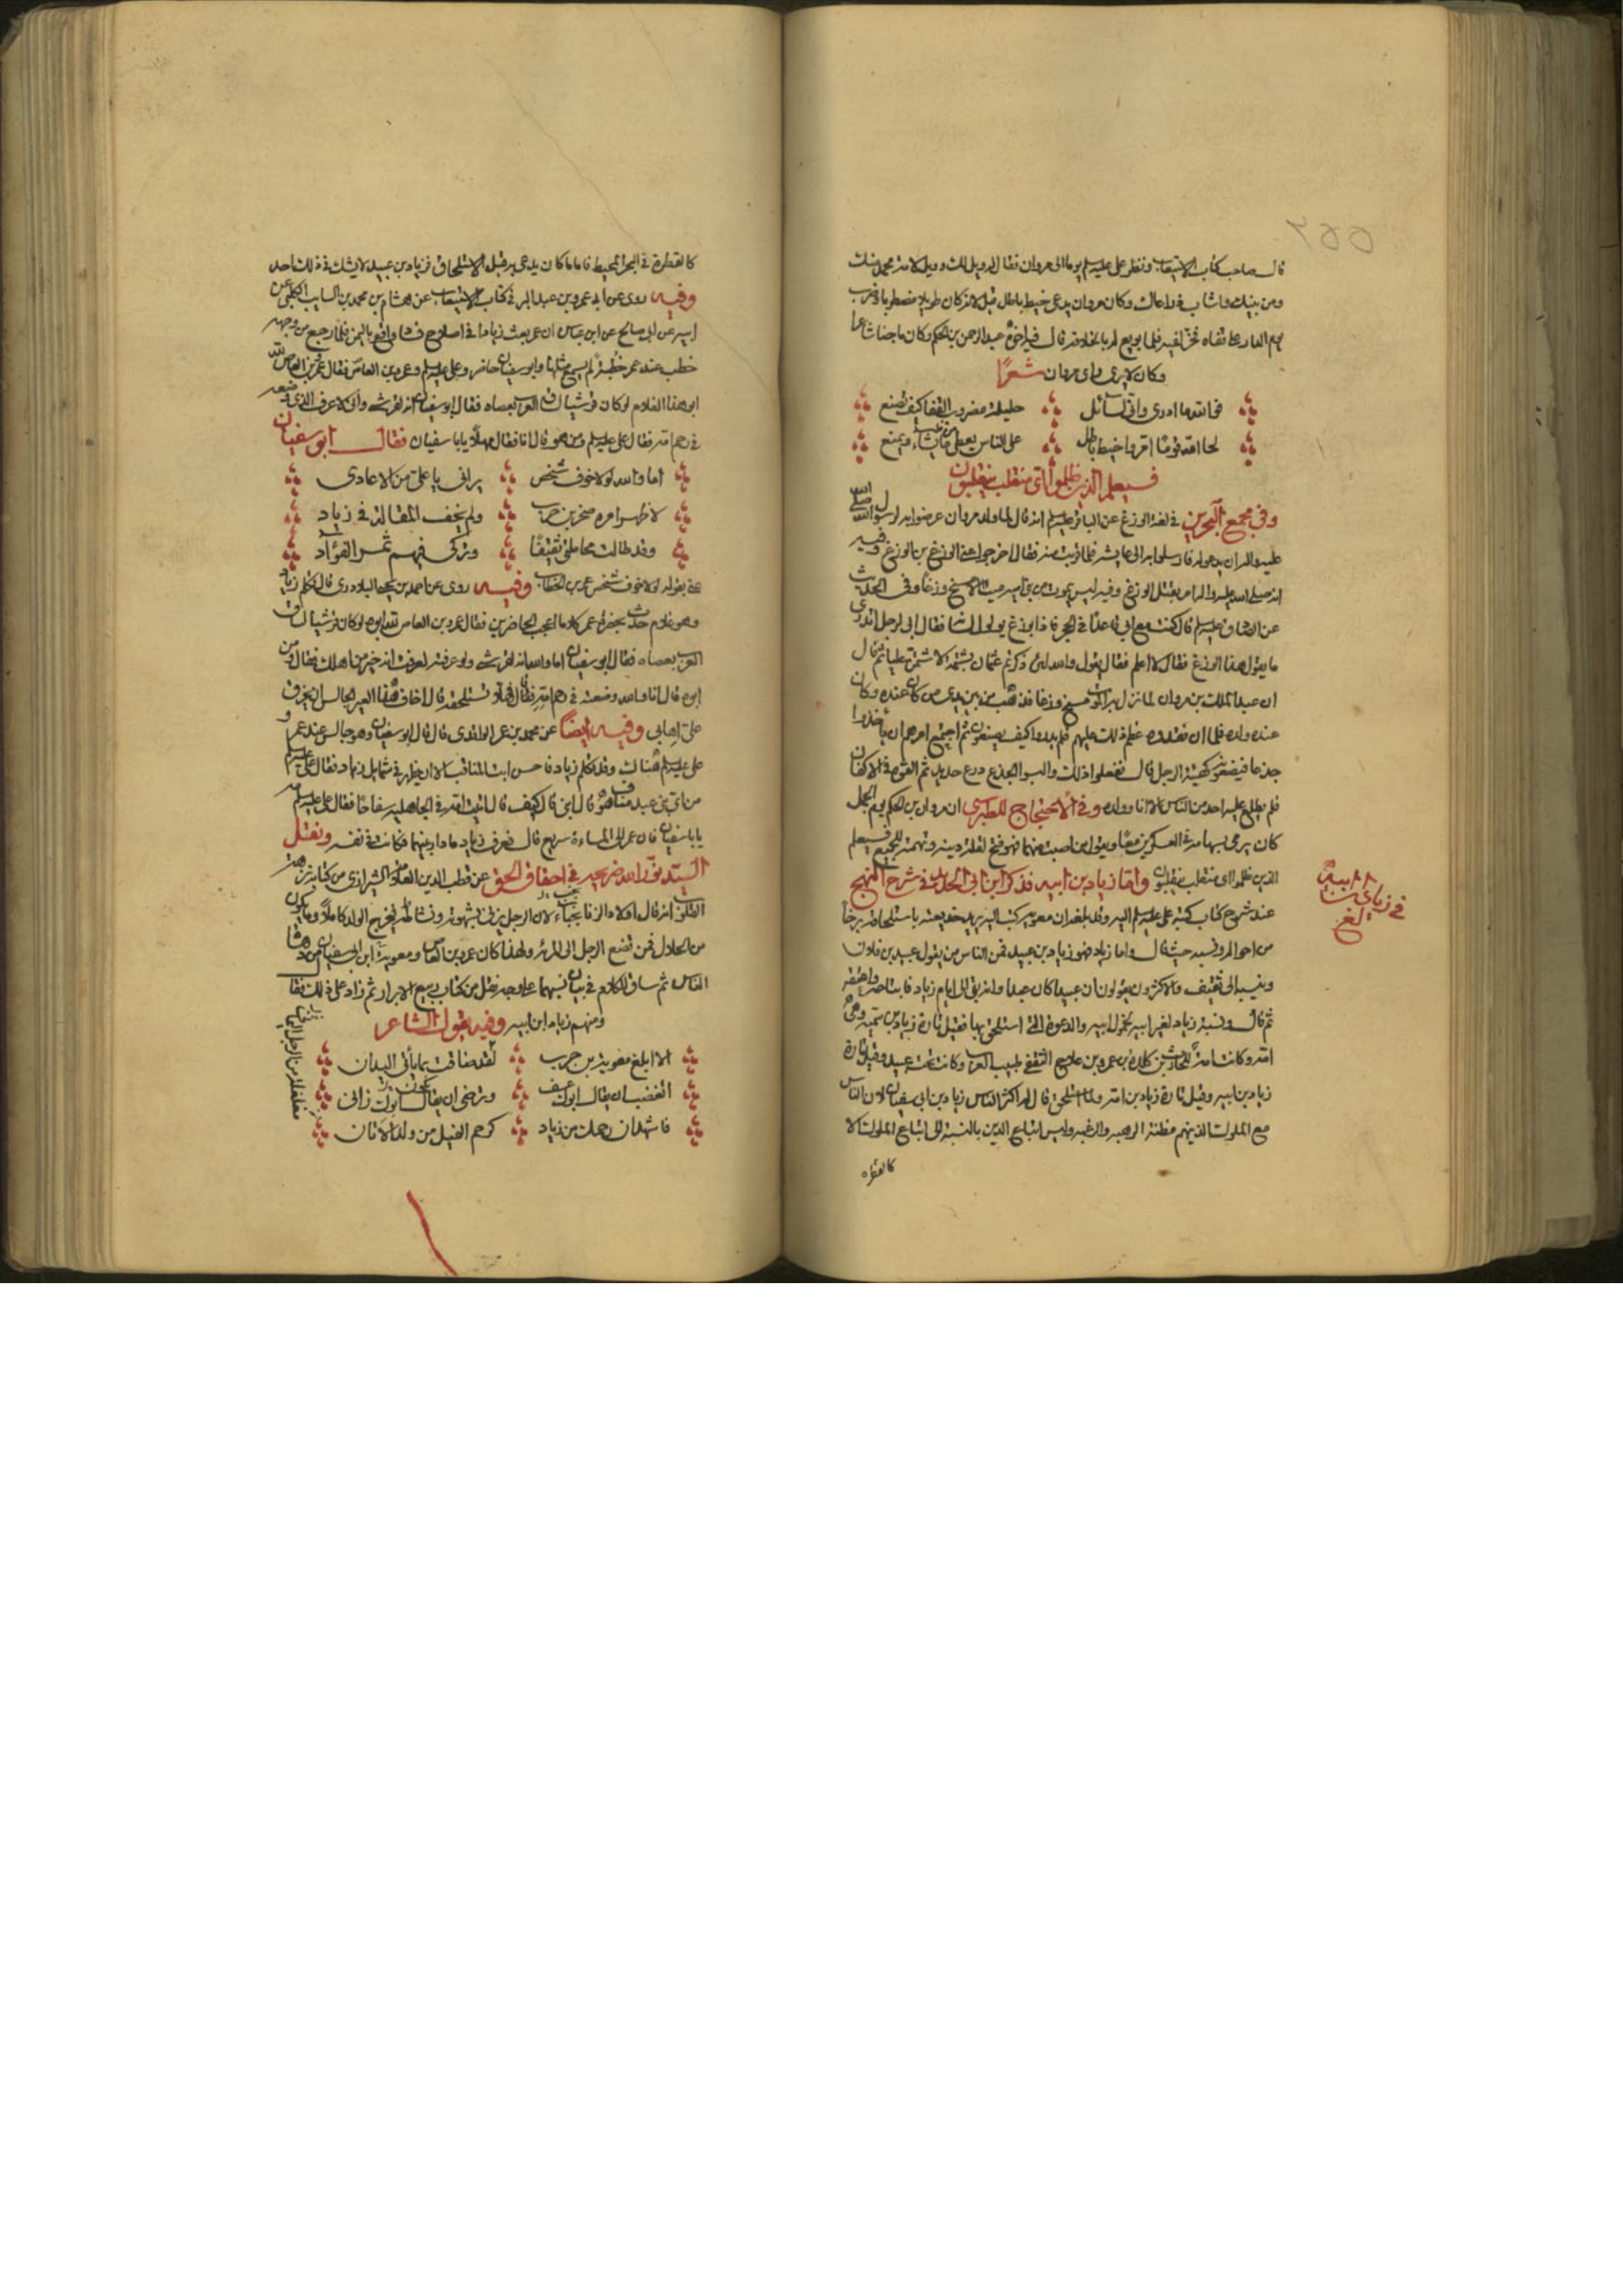 قال صاحب كتاب الاستيعاب ونظر علي عليه السلم يوما الى مروان فقال له ويل لك وويل لامة محمد منك
ومن بنيك اذا شاب وكان مروان يدعى خيط باطل قيل لانه كان طويلا مضطربا وضرب
يوم الدار على قفاه فخر لفيه فلما بويع له بالخلافة قال فيه اخوه عبد الرحمن بن الحكم وكان ماجنا شاعرا
وكان لا يرى راى مروان شعرًا
فوالله ما ادرى وانى لسائل حليلة مضروب القفا كيف تصنع
لحا الله قومًا امّروا خيط باطل على الناس يعطى من يشاء ويمنع
فسيعلم الذين ظلموا اى منقلب ينقلبون
وفى مجمع البحرين فى لغة الوزغ عن الباقر عليه السلم انه قال لما ولد مروان عرضوا به لرسول الله صلى الله
عليه واله ان يدعو له فارسلوا به الى عايشة فلما قربته منه فقال اخرجوا عنى الوزغ بن الوزغ وفيه
انه صلى الله عليه واله امر بقتل الوزغ وفيه ليس يموت من بنى امية ميت الا مسخ وزغًا وفى الحديث
عن الصادق عليه السلم قال كنت مع ابى قاعدًا فى الحجر فاذا بوزغ يولول بلسانه فقال ابى لرجل اتدرى
ما يقول هذا الوزغ فقال لا اعلم فقال يقول والله لئن ذكرتم عثمان بشتمة لاشتمن عليا ثم قال
ان عبد الملك بن مروان لما نزل به الموت مسخ وزغا فذهب من بين يدى من كان عنده وكان
عنده ولده فلما ان فقدوه عظم ذلك عليهم فلم يدروا كيف يصنعون ثم اجتمع امرهم ان ياخذوا
جذعا فيصنعوه كهيئة الرجل قال ففعلوا ذلك والبسوا الجذع درع حديد ثم القوه فى الاكفان
فلم يطلع عليه احد من الناس الا انا وولده وفى الاحتجاج للطبرسى ان مروان بن الحكم يوم الجمل
كان يرمى بسهامه فى العسكرين معًا ويقول من اصبت منهما فهو فتح لقلة دينه وتهمته للجميع فسيعلم
الذين ظلموا اى منقلب ينقلبون واما زياد بن ابيه فذكر ابن ابى الحديد فى شرح النهج
عند شرح كتاب كتبه على عليه السلم اليه وقد بلغه ان معوية كتب اليه يريد خديعته باستلحاقه برخا
من احواله ونسبه حيث قال واما زياد فهو زياد بن عبيد فمن الناس من يقول عبيد بن فلان
وينسبه الى ثقيف والاكثرون يقولون ان عبيدا كان عبدا وانه بقى الى ايام زياد فابتاعه واعتقه
ثم قال ونسبة زياد لغير ابيه لخمول ابيه والدعوة التى استلحق بها فقيل تارة زياد بن سمية وهى
امه وكانت امة للحارث بن كلدة بن عمرو بن علاج الثقفى طبيب العرب وكانت تحت عبيد وقيل تارة
زياد بن ابيه وقيل تارة زياد بن امه ولما استلحق قال له اكثر الناس زياد بن ابى سفيان لان الناس
مع الملوك الذين هم مظنة الرهبة والرغبة وليس اتباع الدين بالنسبة الى اتباع الملوك الا
كالقطرة
فى زياد بن ابيه
كالقطرة فى البحر المحيط فاما ما كان يدعى به قبل الاستلحاق فزياد بن عبيد لا يشك فى ذلك احد
وفيه روى عن ابى عمرو بن عبد البر فى كتاب الاستيعاب عن هشام بن محمد بن السايب الكلبى عن
ابيه عن ابى صالح عن ابن عباس ان عمر بعث زيادا فى اصلاح فساد واقع باليمن فلما رجع من وجهه
خطب عند عمر خطبة لم يسمع مثلها وابو سفيان حاضر وعلى عليه السلم وعمرو بن العاص فقال عمرو بن العاص لله
ابو هذا الغلام لو كان قرشيا لساق العرب بعصاه فقال ابو سفيان انه لقرشى وانى لاعرف الذى وضعه
فى رحم امه فقال على عليه السلم ومن هو قال انا فقال مهلًا يا با سفيان فقال ابو سفيان
اما والله لولا خوف شخص يرانى يا على من الاعادى
لاظهر امره صخر بن حرب ولم يخف المقالة فى زياد
وقد طالت مجاملتى ثقيفًا وتركى فيهم ثمر الفؤاد
عنى بقوله لولا خوف شخص عمر بن الخطاب وفيه روى عن احمد بن يحيى البلاذرى قال تكلم زياد
وهو غلام حدث بحضرة عمر كلاما اعجب الحاضرين فقال عمرو بن العاص لله ابوه لو كان قرشيا لساق
العرب بعصاه فقال ابو سفيان اما والله انه لقرشى ولو عرفته لعرفت انه خير من اهلك فقال ومن
ابوه قال انا والله وضعته فى رحم امه فقال فهلا تستلحقه قال اخاف هذا العير الجالس ان يخرق
على اهابى وفيه ايضًا عن محمد بن عمر الواقدى قال قال ابو سفيان وهو جالس عند عمر و
على عليه السلم هناك وقد تكلم زياد فاحسن ابت المناقب الا ان يظهر فى شمايل زياد فقال على عليه السلم
من اى بنى عبد مناف هو قال ابنى قال كيف قال اتيت امه فى الجاهلية سفاحًا فقال على عليه السلم مه
يا با سفيان فان عمر الى المساءة سريع قال فعرف زياد ما دار بينهما فكانت فى نفسه ونقل
السيد نور الله ضريحه فى احقاق الحق عن قطب الدين العلامة الشيرازى من كتابه نزهة
القلوب انه قال اولاد الزنا نجباء لان الرجل يزنى بشهوته ونشاطه فيخرج الولد كاملًا وما يكون
من الحلال فمن تصنع الرجل الى المراة ولهذا كان عمرو بن العاص ومعوية ابن ابى سفيان من دهاة
الناس ثم ساق الكلام فى بيان نسبهما على وجه نقل من كتاب ربيع الابرار ثم زاد على ذلك فقال
ومنهم زياد ابن ابيه وفيه يقول الشاعر
الا ابلغ معوية بن حرب لقد ضاقت بما ياتى اليدان
اتغضب ان يقال ابوك عف وترضى ان يقال ابوك زانى
فاشهد ان رحمك من زياد كرحم الفيل من ولد الاتان
مغلغلة من الرجل اليمانى